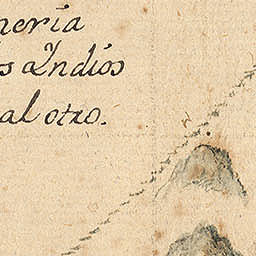 neria
s Indios
al otro.